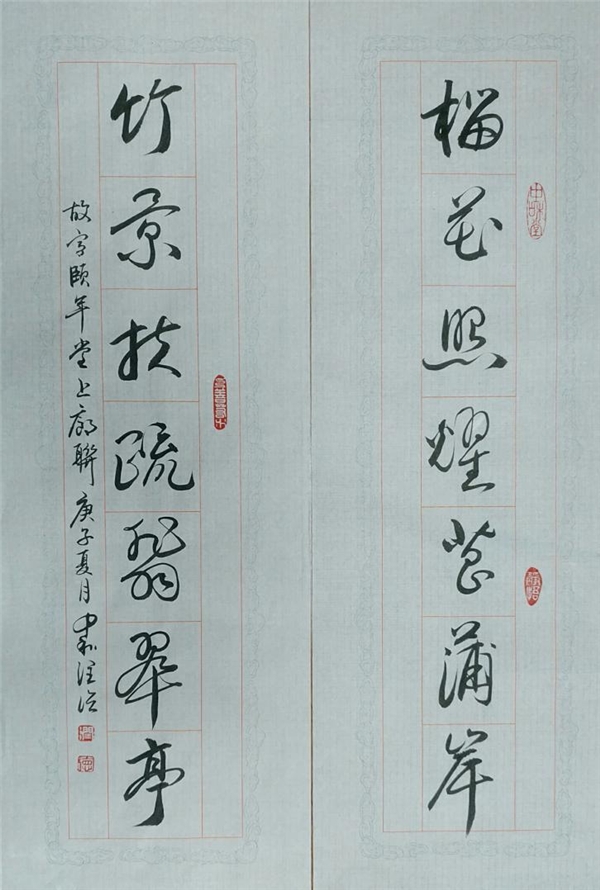 榴花照耀菖蒲岸
竹景扶疏翡翠亭
故宫頤年堂上廊聯 庚子夏月